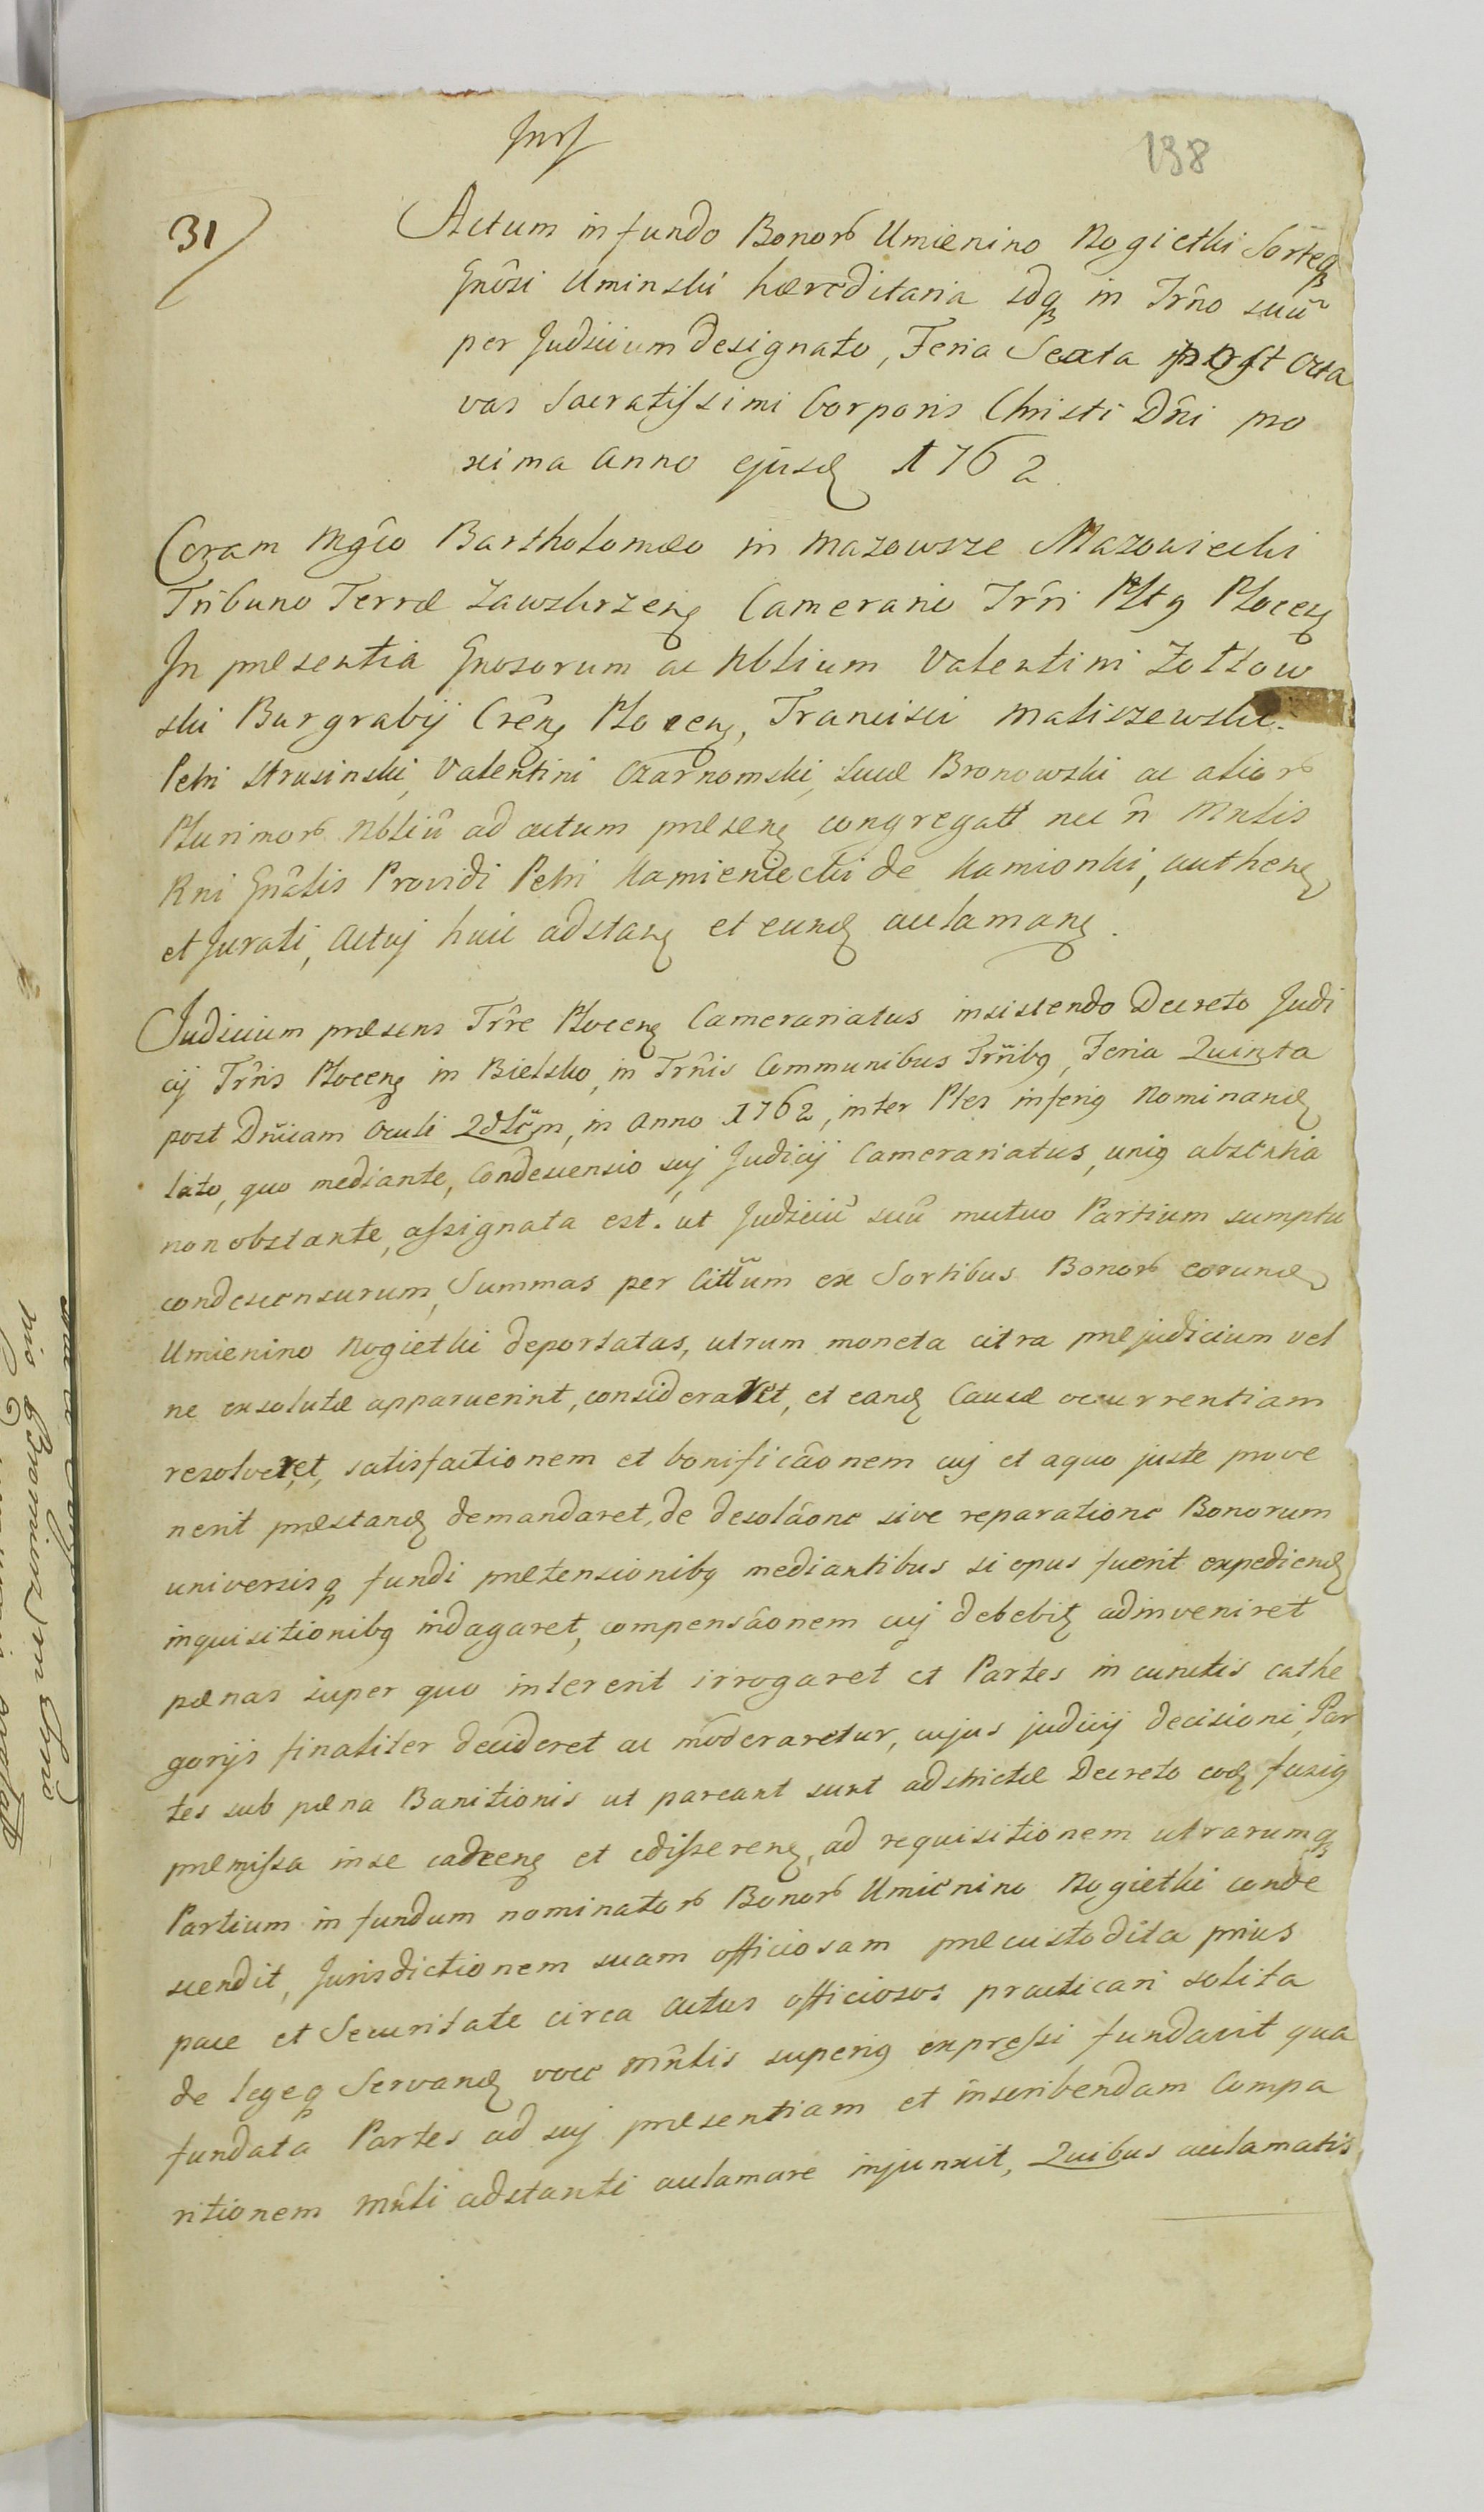 138
31
Actum in fundo Bonorb Umienino Rogietki Sorteq
Gnôsi Uminski hæreditaria sdq in Trno suũ
per Judicium designato, Feria Sexta post Octa
vas Sacratissimi Corporis Christi Dñi pro
xima Anno ejusd 1762.
Coram Mgco Bartholomæo in Mazowsze Mazowiecki
Tribuno Terræ Zawskrzen Camerario Trri Pltq Plocen
In præsentia Gnosorum ac Nblium Valentini Zołtow
ski Burgrabij Cren Plocen, Francisci Maliszewski
Petri Strusinski, Valentini Czarnomski, Lucæ Bronowski ac aliorb
Plurimorb Nbliũ ad actum præsen congregatt nec ñ Mnlis
Rni Gnâlis Providi Petri Kamieniecki de Kamionki, authen
et Jurati, Actuj huic adstan et eund acclaman.
Judicium præsens Trre Plocen Camerariatus insistendo Decreto Judi
cij Trris Plocen in Bielsko, in Trnis Communibus Trribq, Feria Quinta
post Dnicam Oculi Qdlem, in Anno 1762, inter Ptes inferiq Nominand
lato, quo mediante, Condescensio suj Judicij Camerariatus, uniq absentia
non obstante, assignata est. ut Judiciũ suũ mutuo Partium sumptu
condescensurum, Summas per Cittum ex Sortibus Bonorb eorund
Umienino Rogietki deportatas, utrum moneta citra præjudicium vel
ne exsolutæ apparuerint, consideraret, et eand Causæ occurrentiam
resolveret, satisfactionem et bonificâonem cuj et a quo juste prove
nerit præstand demandaret, de desolâone sive reparatione Bonorum
universisq fundi prætensionibq mediantibus si opus fuerit expediend
inquisitionibq indagaret, compensâonem cuj debebit adinveniret
pænas super quo intererit irrogaret et Partes in cunctis cathe
gorijs finaliter decideret ac moderaretur, cujus judicij decisioni, Par
tes sub pæna Banitionis ut pareant sunt adstrictæ Decreto eod fusiq
præmissa in se cadcen et edisseren, ad requisitionem utrarumq
Partium in fundum nominatorb Bonorb Umienino Rogietki conde
scendit, Jurisdictionem suam officiosam præcustodita prius
pace et Securitate circa Actus officiosos practicari solita
de legeq Servand voce Mñlis superiq expressi fundavit qua
fundata Partes ad suj præsentiam et inscribendam Compa
ritionem Mñli adstanti acclamare injunxit, Quibus acclamatis